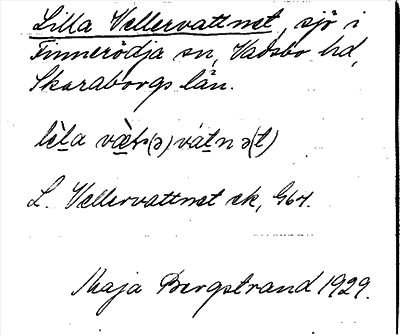 Lilla Vellervattnet, sjö i
Finnerödja sn, Vadsbo hd,
Skaraborgs län.
L. Vellervattnet ek, G64.
Maja Bergstrand 1929.